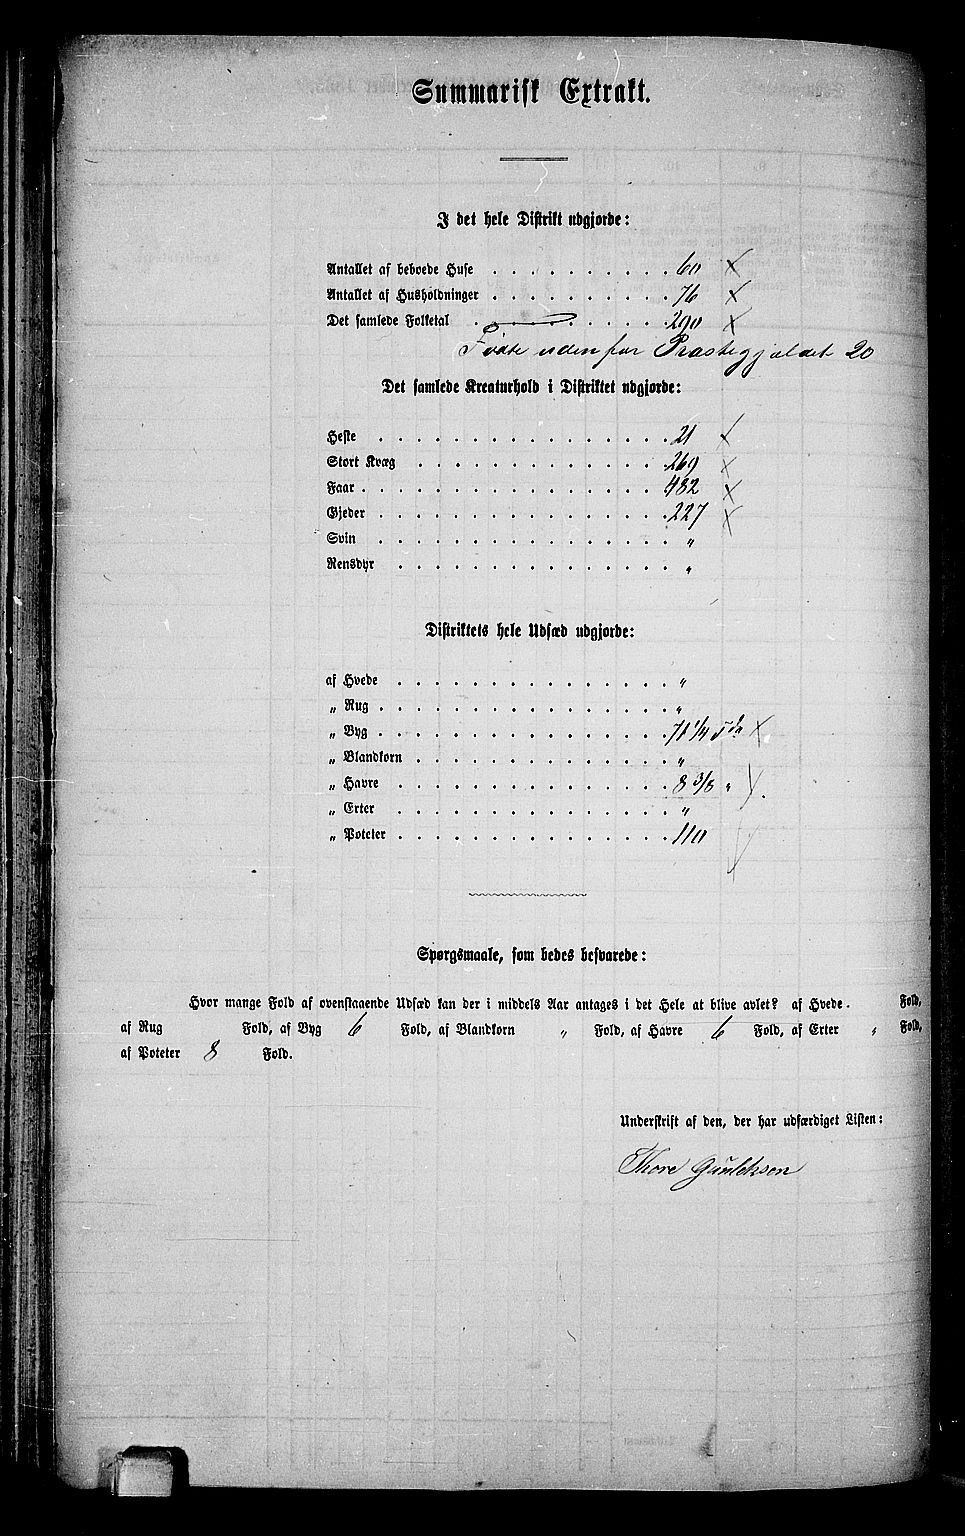 Summarisk Extrakt.
I det hele Distrikt udgjorde:
Antallet af beboede Huse . . . . . . . . . . 60 ×
Antallet af Husholdninger . . . . . . . . . . 76 ×
Det samlede Folketal . . . . . . . . . . 290 ×
Fødte udenfor Præstegjældet 20
Det samlede Kreaturhold i Distriktet udgjorde:
Heste . . . . . . . . . . . . . . . . 21 ×
Stort Kvæg . . . . . . . . . . . . . . 269 ×
Faar . . . . . . . . . . . . . . . . . 482 ×
Gjeder . . . . . . . . . . . . . . . . 227 ×
Svin . . . . . . . . . . . . . . . . "
Rensdyr . . . . . . . . . . . . . . . "
Distriktets hele Udsæd udgjorde:
af Hvede . . . . . . . . . . . . . . . "
„ Rug . . . . . . . . . . . . . . . . "
„ Byg . . . . . . . . . . . . . . . . 71 1/4 Tdr ×
„ Blandkorn . . . . . . . . . . . . . . "
„ Havre . . . . . . . . . . . . . . . 8 3/8 " ×
„ Erter . . . . . . . . . . . . . . . "
„ Poteter . . . . . . . . . . . . . . . 110
Spørgsmaale, som bedes besvarede:
Hvor mange Fold af ovenstaaende Udsæd kan der i middels Aar antages i det Hele at blive avlet? af Hvede . Fold,
af Rug Fold, af Byg 6 Fold, af Blandkorn " Fold, af Havre 6 Fold, af Erter " Fold,
af Poteter 8 Fold.
Underskrift af den, der har udfærdiget Listen:
Thore Gunleksen